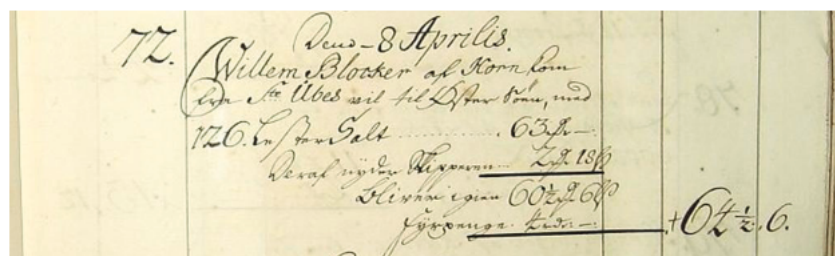 72.
Dend - 8 Aprilis.
Willem Blocker af Horn kom
fra Ste Ubes vil til Øster Søen, med
126. Lester Salt ............ 63
Deraf nyder Skipperen 2 18
Bliver igien 60½ 6
Fyrpenge 4 rd: —
+ 64½. 6.